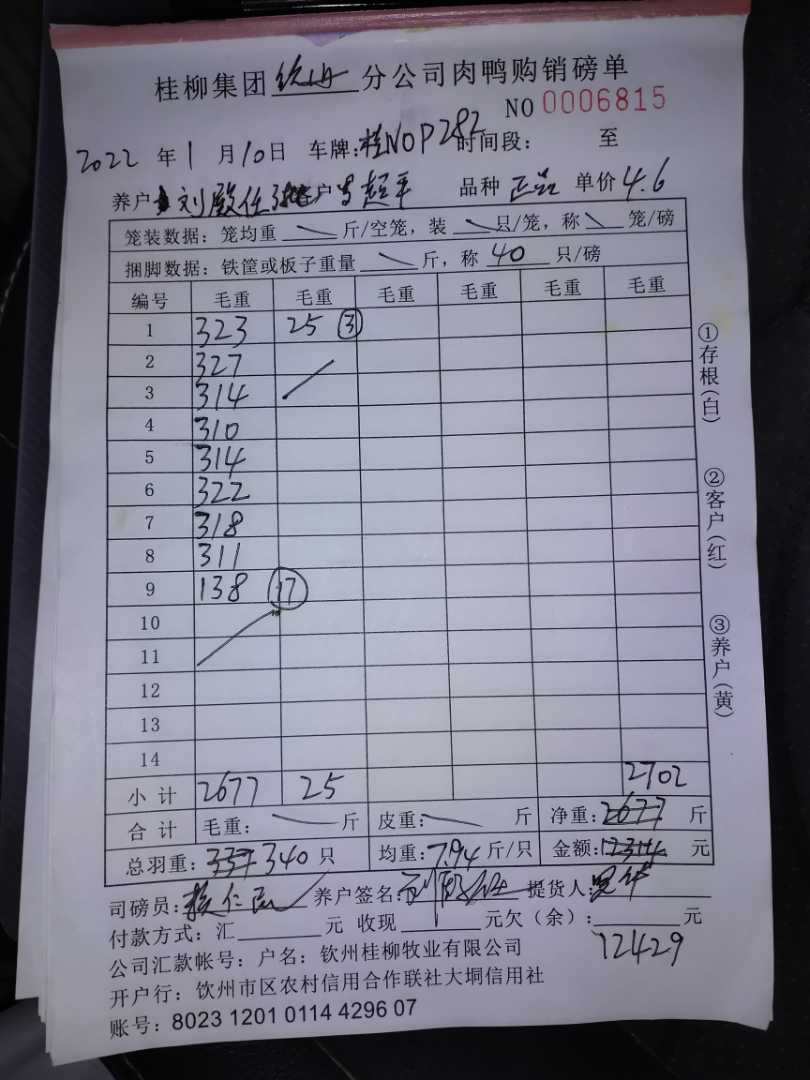 桂柳集团 分公司肉鸭购销磅单
NO 0006815
2022 年 1 月 10 日 车牌：桂NOP282 时间段： 至
养户 刘殿任 客户 超平 品种 正品 单价 4.6
笼装数据：笼均重 斤/空笼，装 只/笼，称 笼/磅
捆脚数据：铁筐或板子重量 斤，称 40 只/磅
编号 毛重 毛重 毛重 毛重 毛重 毛重
1 323 25 ③
2 327
3 314
4 310
5 314
6 322
7 318
8 311
9 138 17
10
11
12
13
14
小计 2677 25 2702
合计 毛重： 斤 皮重： 斤 净重：2677 斤
总羽重：337 340 只 均重：7.94 斤/只 金额：12314 元
司磅员： 养户签名： 提货人：
付款方式：汇 元 收现 元欠（余）： 元
12429
公司汇款帐号：户名：钦州桂柳牧业有限公司
开户行：钦州市区农村信用合作联社大垌信用社
账号：8023 1201 0114 4296 07
①存根（白）
②客户（红）
③养户（黄）